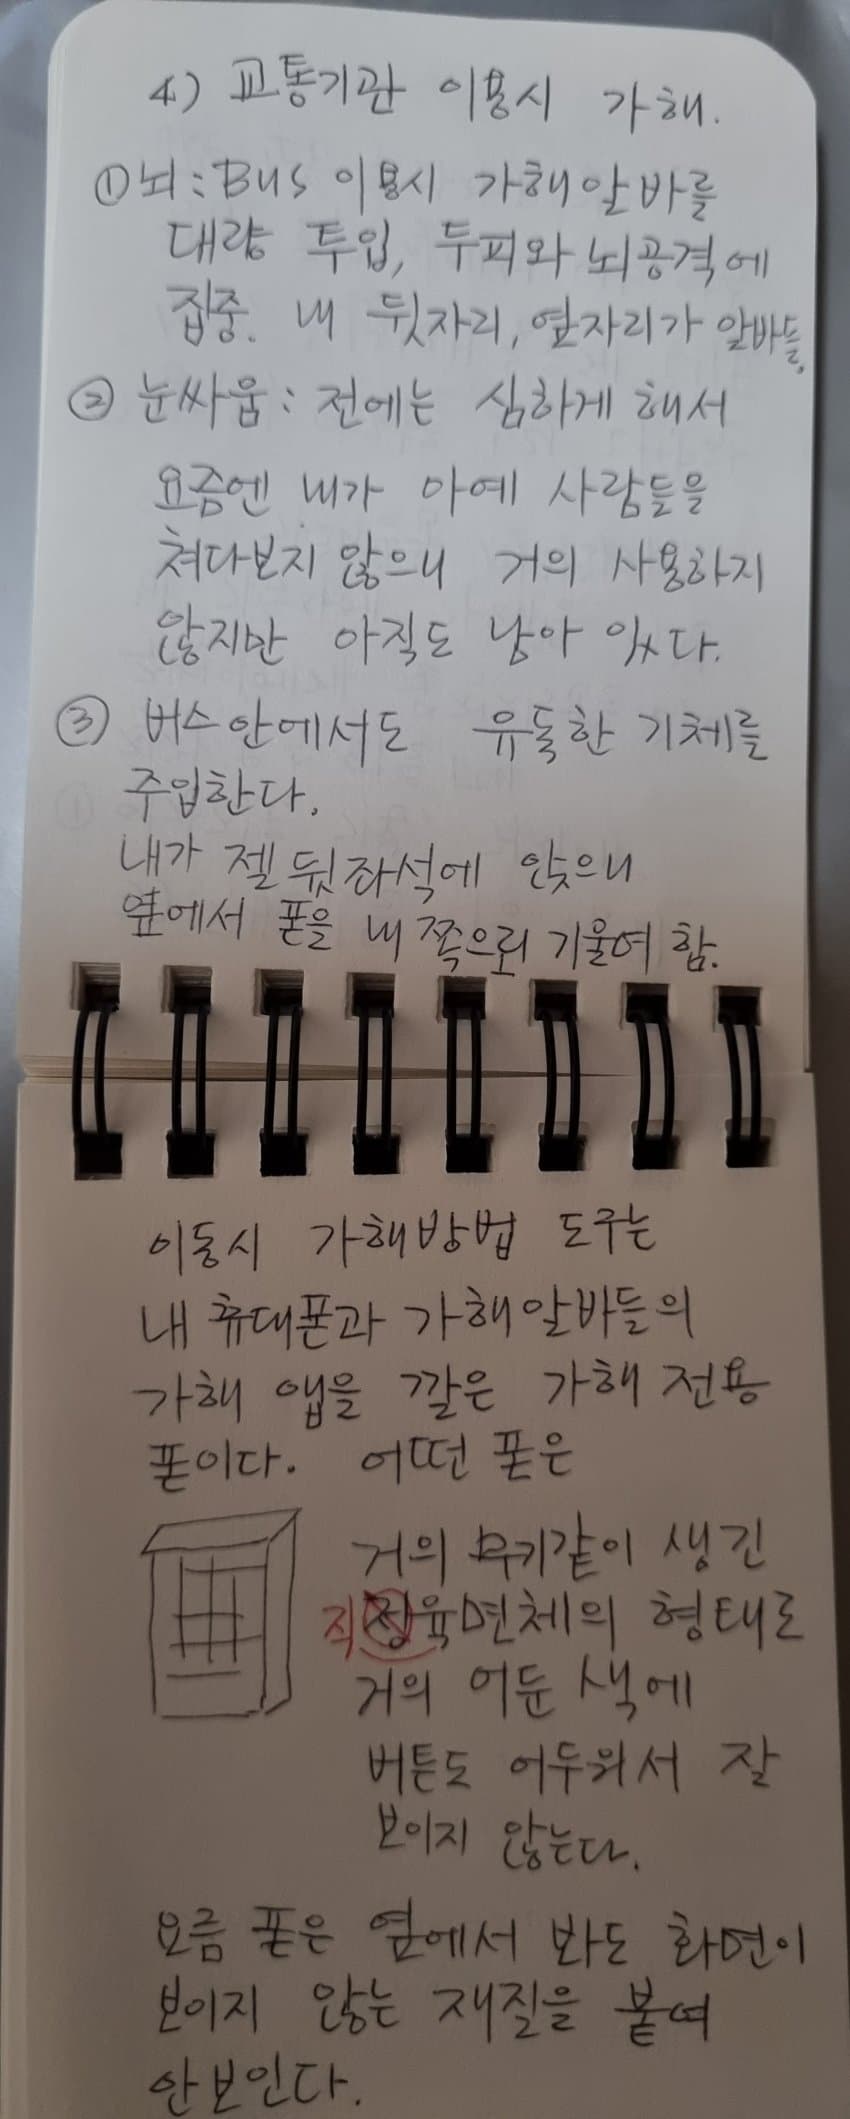 4) 교통기관 이용시 가해.
① 뇌: BUS 이용시 가해알바를
대량 투입, 두피와 뇌공격에
집중. 내 뒷자리, 옆자리가 알바들.
② 눈싸움: 전에는 심하게 해서
요즘엔 내가 아예 사람들을
쳐다보지 않으니 거의 사용하지
않지만 아직도 남아 있다.
③ 버스안에서도 유독한 기체를
주입한다.
내가 젤 뒷좌석에 앉으니
옆에서 폰을 내쪽으로 기울여 함.
이동시 가해방법 도구는
내 휴대폰과 가해알바들의
가해 앱을 깔은 가해 전용
폰이다. 어떤 폰은
거의 무기같이 생긴
직육면체의 형태로
거의 어둔 색에
버튼도 어두워서 잘
보이지 않는다.
요즘 폰은 옆에서 봐도 화면이
보이지 않는 재질을 붙여
안보인다.